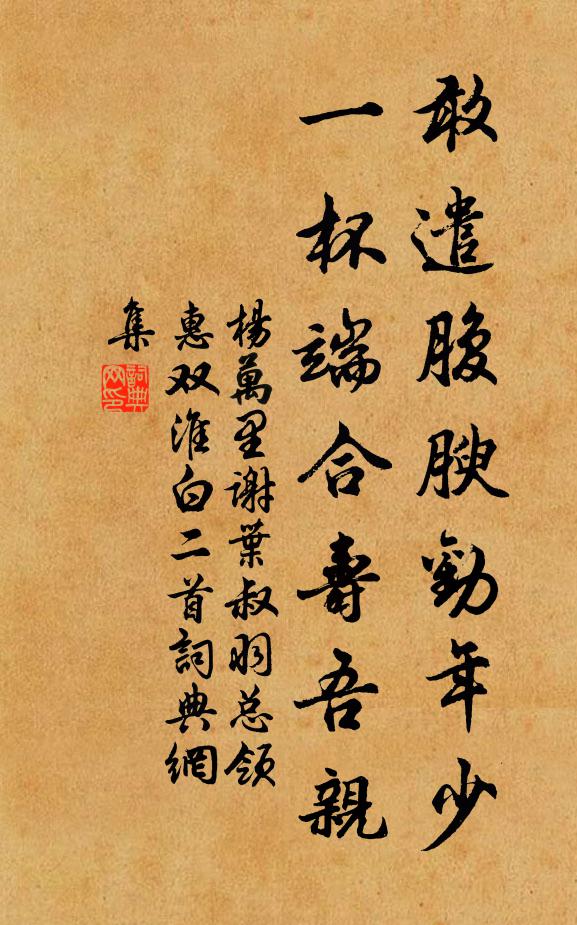 敢遣腹腴勸年少
一杯端合壽吾親
楊萬里謝葉叔羽总領
惠双淮白二首詞典網
集
詞典
网印